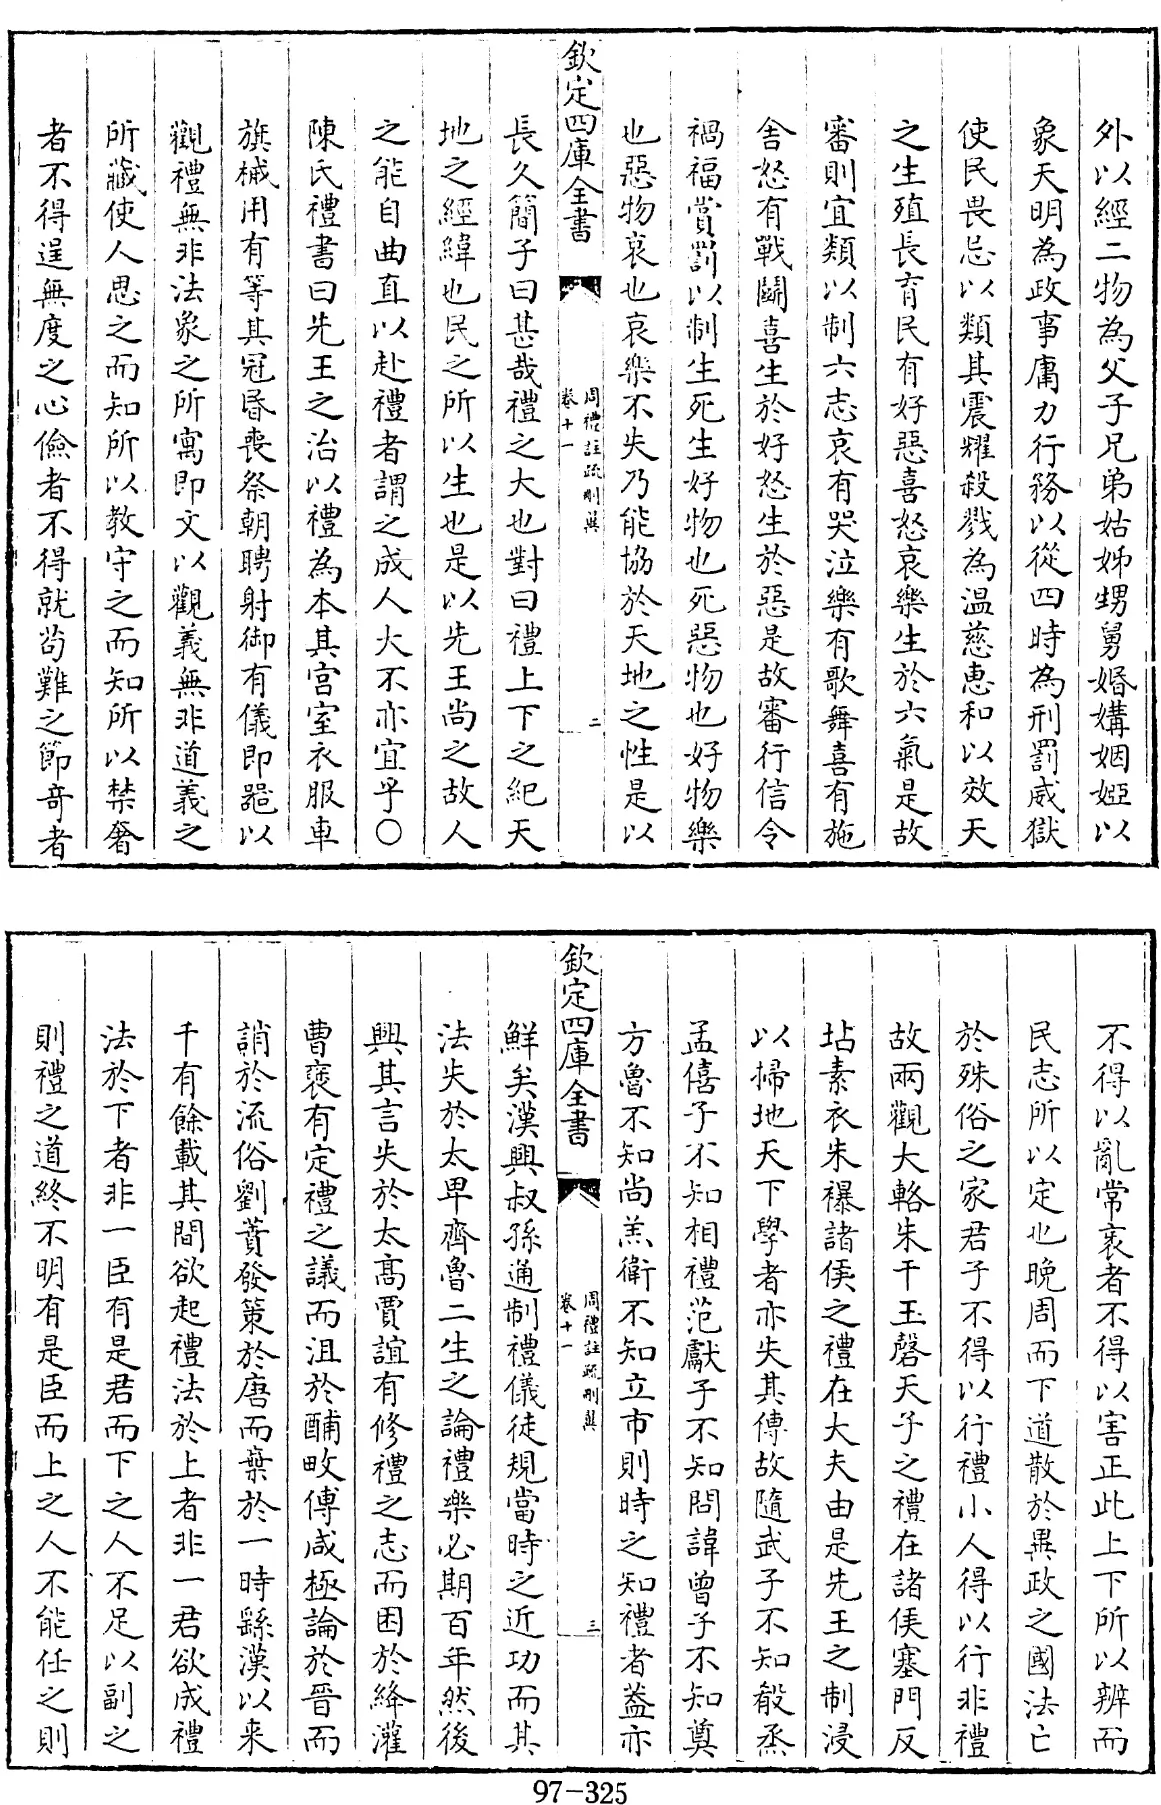 外以經二物為父子兄弟姑姊甥舅婚媾姻婭以
象天明為政事庸力行務以從四時為刑罰威獄
使民畏忌以類其震耀殺戮為温慈惠和以效天
之生殖長育民有好惡喜怒哀樂生於六氣是故
審則宜類以制六志哀有哭泣樂有歌舞喜有施
舍怒有戰鬭喜生於好怒生於惡是故審行信令
禍福賞罰以制生死生好物也死惡物也好物樂
也惡物哀也哀樂不失乃能協於天地之性是以
欽定四庫全書
周禮註疏刪翼
卷十一
二
長久簡子曰甚哉禮之大也對曰禮上下之紀天
地之經緯也民之所以生也是以先王尚之故人
之能自曲直以赴禮者謂之成人大不亦宜乎○
陳氏禮書曰先王之治以禮為本其宫室衣服車
旗械用有等其冠昏喪祭朝聘射御有儀即器以
觀禮無非法象之所寓即文以觀義無非道義之
所藏使人思之而知所以教守之而知所以禁奢
者不得逞無度之心儉者不得就苟難之節竒者
不得以亂常衺者不得以害正此上下所以辨而
民志所以定也晚周而下道散於異政之國法亡
於殊俗之家君子不得以行禮小人得以行非禮
故兩觀大輅朱干玉磬天子之禮在諸侯塞門反
坫素衣朱襮諸侯之禮在大夫由是先王之制浸
以掃地天下學者亦失其傳故隨武子不知殽烝
孟僖子不知相禮范獻子不知問諱曾子不知奠
方魯不知尚羔衛不知立市則時之知禮者葢亦
欽定四庫全書
周禮註疏刪翼
卷十一
三
鮮矣漢興叔孫通制禮儀徒規當時之近功而其
法失於太卑齊魯二生之論禮樂必期百年然後
興其言失於太髙賈誼有修禮之志而困於絳灌
曹襃有定禮之議而沮於酺敃傅咸極論於晉而
誚於流俗劉蕡發策於唐而棄於一時繇漢以来
千有餘載其間欲起禮法於上者非一君欲成禮
法於下者非一臣有是君而下之人不足以副之
則禮之道終不明有是臣而上之人不能任之則
97-325